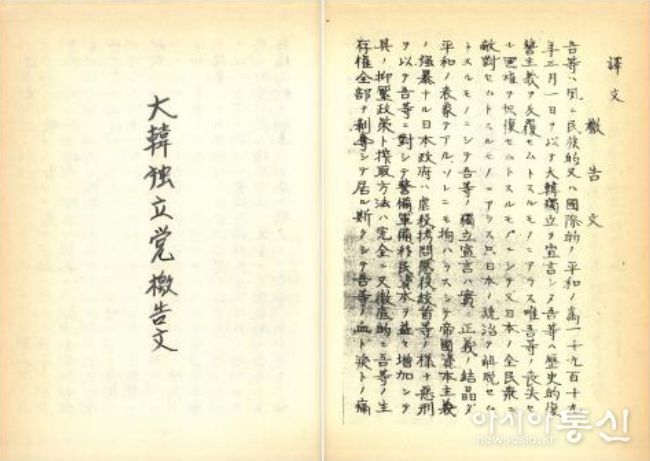 大韓独立党檄告文
譯文
檄告文
吾等ハ夙ニ民族的又ハ國際的ノ平和ノ爲一千九百十九
年三月一日ヲ以テ大韓獨立ヲ宣言シタ吾等ハ歷史的復
讐主義ヲ反復セムトスルモノニアラス唯吾等ノ喪失セ
ヲ恢復セムトスルモノニシテ又日本ノ全民衆ニ
敵對セムトスルモノニアラス只日本ノ統治ヲ離脱セム
トスルモノニシテ吾等ノ獨立宣言ハ實ニ正義ノ結晶ダ
平和ノ表象テアルソレニモ拘ハラスシテ帝國資本主義
ノ强暴ナル日本政府ハ虐殺拷問懲役絞首等ノ樣ナ惡刑
ヲ以テ吾等ニ對シテ警備軍備移民資本ヲ益々增加シテ
其ノ抑壓政策ト搾取方法ハ完全ニ又徹底的ニ吾等ノ生
存權全部ヲ剥奪シテ居ル斯クシテ吾等ノ血ト淚トノ痛
아시아통신
newsasia.kr